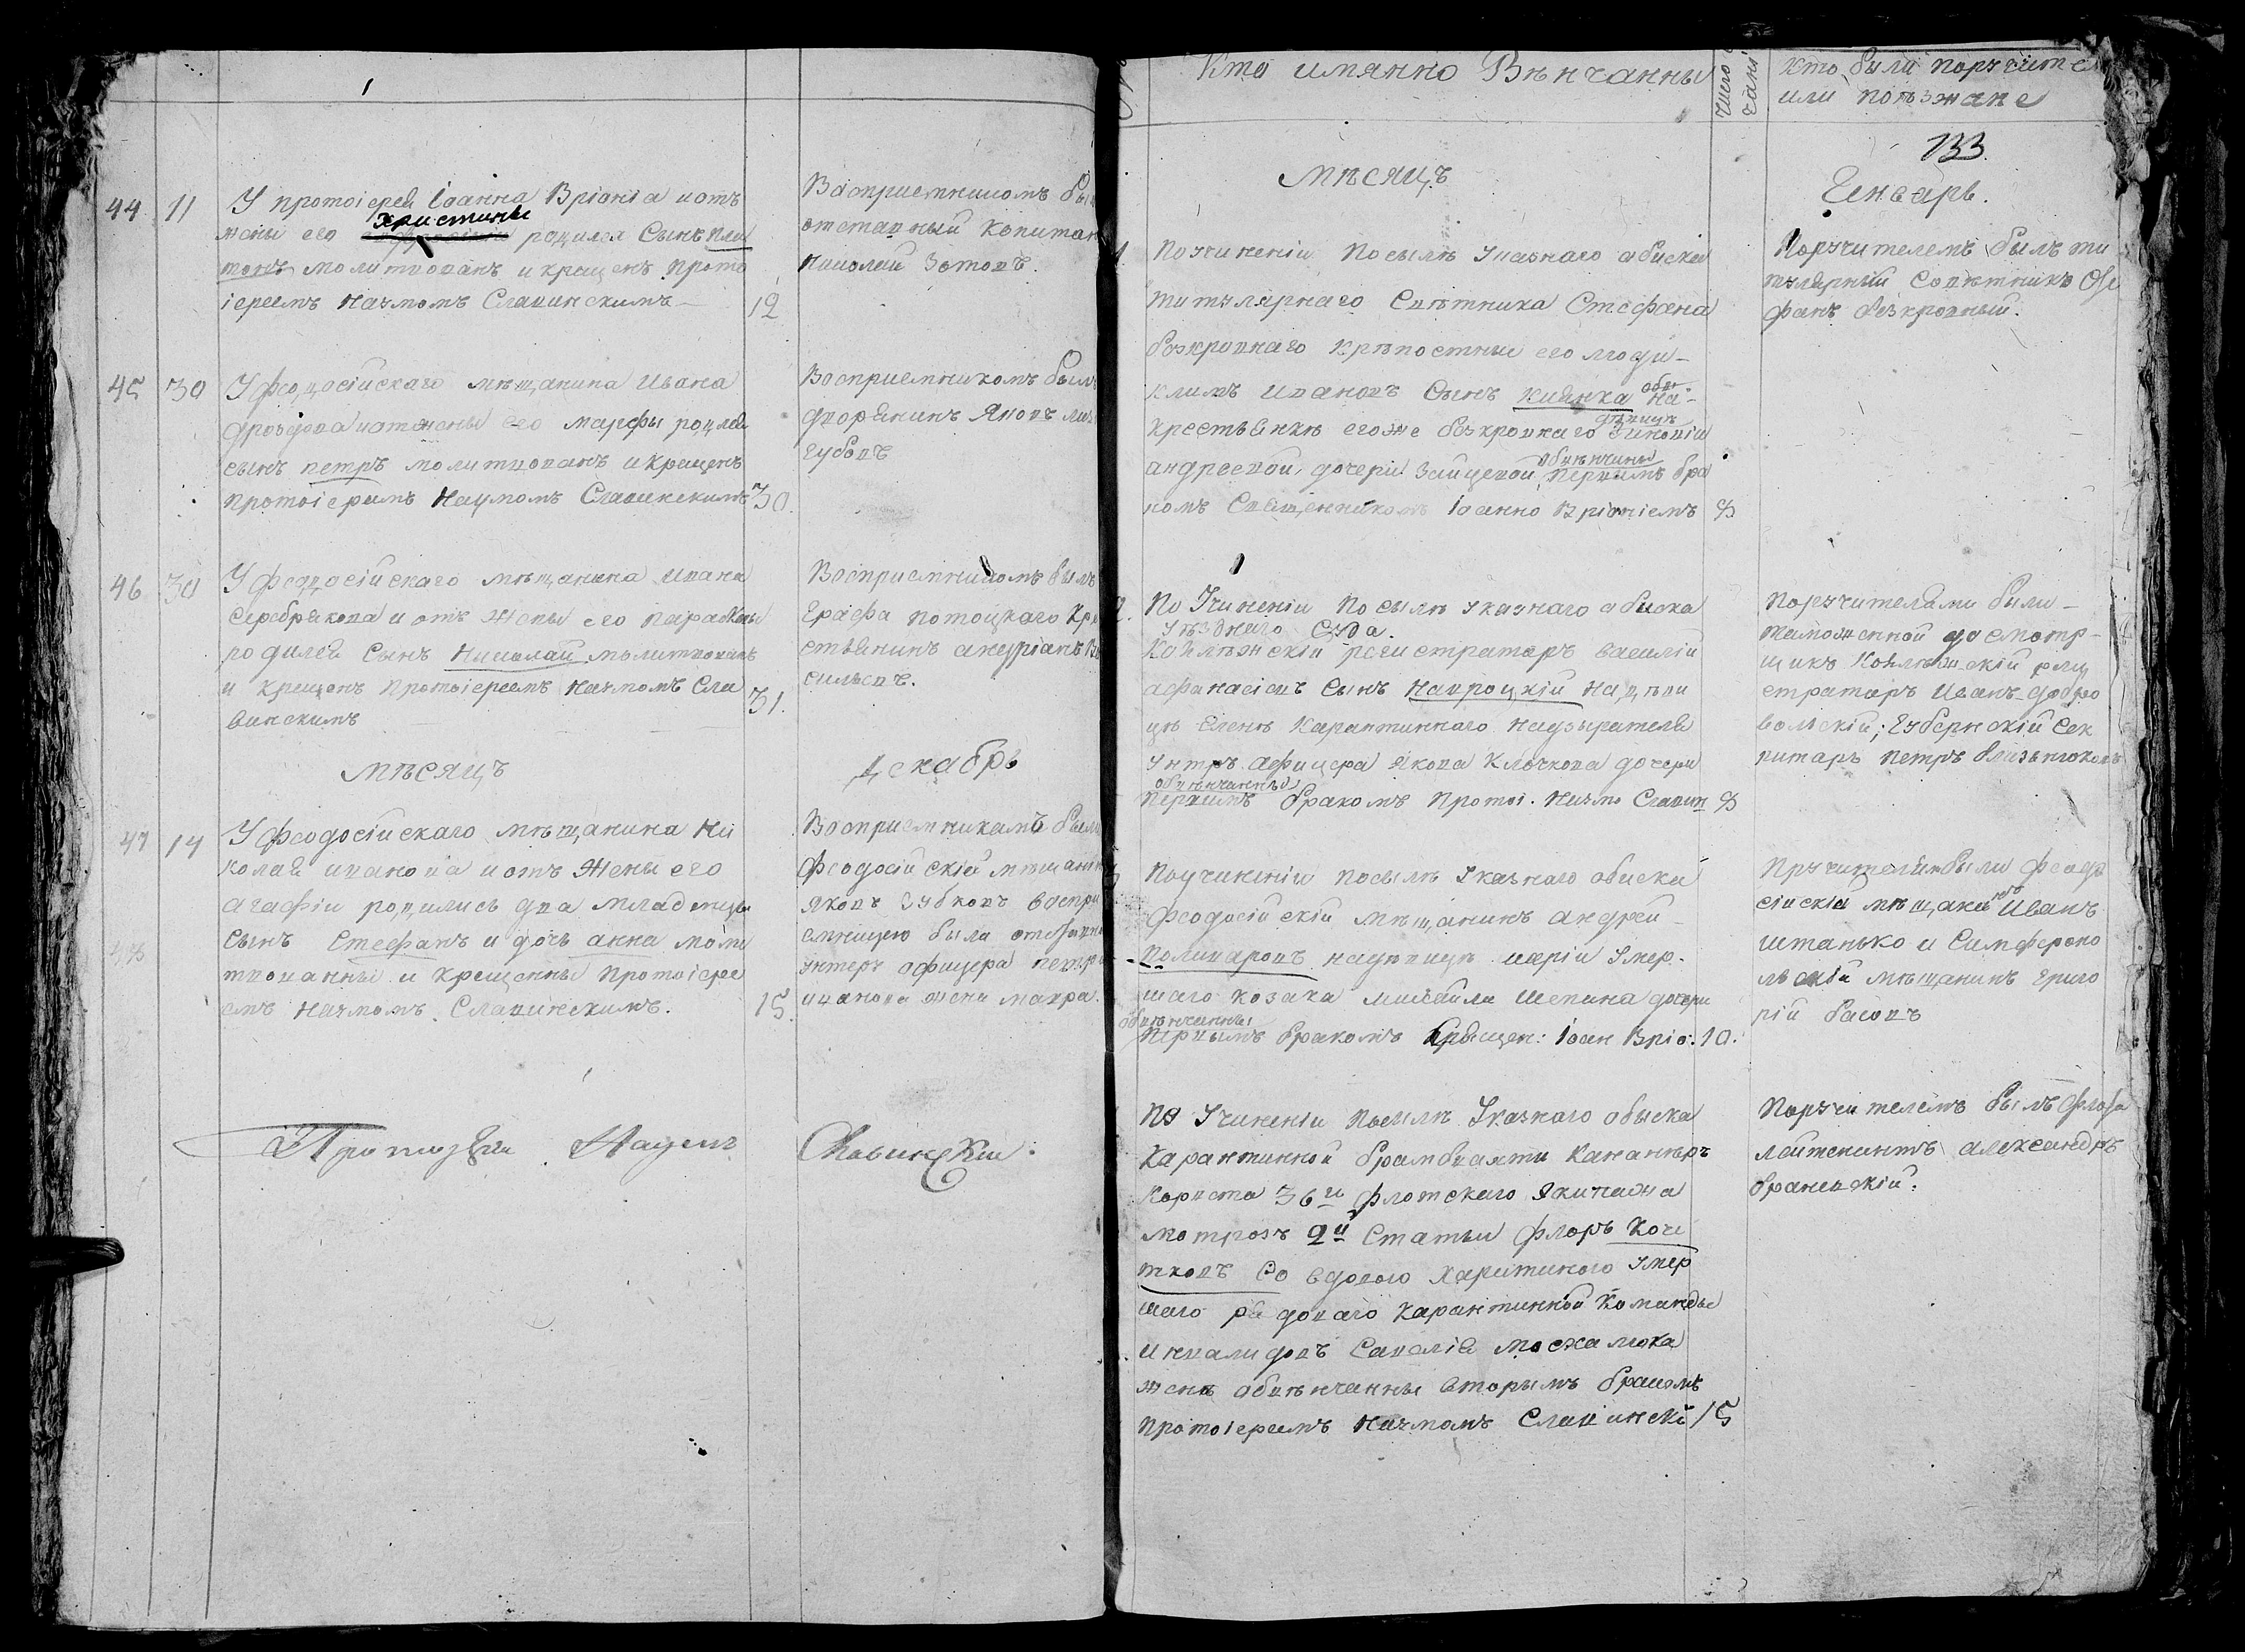 44 11 У протоіерея Іоанна Вріонія и отъ
Христины
жены его родился Сынъ Пла
тонъ молитвованъ и крещенъ прото
іереемъ Наумомъ Славинскимъ 12
Воспріемникомъ бы
отставный Капитан
Николай Зотовъ.
45 30 У феодосійскаго мѣщанина Ивана
Дроздова и отъ жены его Марфы родился
сынъ петръ молитвованъ и крещенъ
протоіереемъ Наумомъ Славинскимъ 30.
Воспріемникомъ былъ
дворянинъ Яковъ
губовъ
46 30 У Феодосійскаго мѣщанина Ивана
Серебрякова и отъ жены его Парасковы
родился Сынъ Николай молитвованъ
и крещенъ протоіереемъ Наумомъ Сла
винскимъ 31.
Воспріемникомъ былъ
Графа потоцкаго Кре
стьянинъ андріанъ Ва
сильевъ.
Мѣсяцъ Декабрь
47 14 У Феодосійскаго мѣщанина Ни
колая иванова и отъ Жены его
агафіи родились два младенцы
48 Сынъ Стефанъ и дочь анна моли
твованны и крещенны протоіере
емъ Наумомъ Славинскимъ. 15.
Воспріемникамъ были
Феодосійскій мѣщанин
яковъ Зубковъ воспрі
емницею была отставна
унтеръ офицера петра
иванова жена мавра.
Протоіерей Наумъ Славинскій
Кто имянно Вѣнчанны
Число
чані
Кто были поручите
или поѣзжане
133.
Мѣсяцъ Геньварь.
1 По учиненіи посылѣ указнаго обиска
титулярнаго Совѣтника Стефана
безкровнаго крѣпостные его люди
климъ ивановъ сынъ Киянка на
крестьянкѣ его же безкровнаго
дѣвицѣ
андреевой дочери Зайцевой первымъ бра
обвѣнчаны
комъ Священникомъ Іоанно Вріоніемъ 8
Поручителемъ былъ ти
тулярный Совѣтникъ Сте
фанъ безкровный.
2. По Учиненіи посылѣ указнаго обиска
уѣзднаго Суда.
Колѣжскій регистраторъ василій
афанасіевъ сынъ Навроцкій на дѣви
цѣ Еленѣ Карантиннаго Надзырателя
унтръ афицера якова Клочкова дочери
обвѣнчанны
первымъ бракомъ протоі. Наумо Славин 8
Поручителями были
таможенной досмотр
щикъ Колѣжскій реги
страторъ Иванъ добро
вольскій; Губернскій Сек
ритаръ петръ близнюковъ
По учиненіи посылѣ Указнаго обиска
Феодосійскій мѣщанинъ андрей
поликаровъ на дѣвицѣ маріи умер
шаго козака михайла Шепина дочери
обвѣнчанны
первымъ бракомъ священ: Іоан Вріо: 10.
Пручителями были Феодо
сійскій мѣщанинъ Иванъ
штанько и Симферопо
льскій мѣщанинъ григо
рій басовъ
По Учиненіи посылѣ Указнаго обыска
Карантинной брамбвахти Канапѣръ
Корвета 36го флотскаго Экипажа
мотрозъ 2й Статьи флоръ Коче
тковъ со вдовою Харитиною умер
шаго рядоваго Карантинной Команды
инвалидовъ Савелія Москалюка
женѣ обвѣнчанны вторымъ бракомъ
протоіереемъ Наумомъ Славински 15
Поручителемъ былъ флота
лейтенантъ александръ
враневскій.